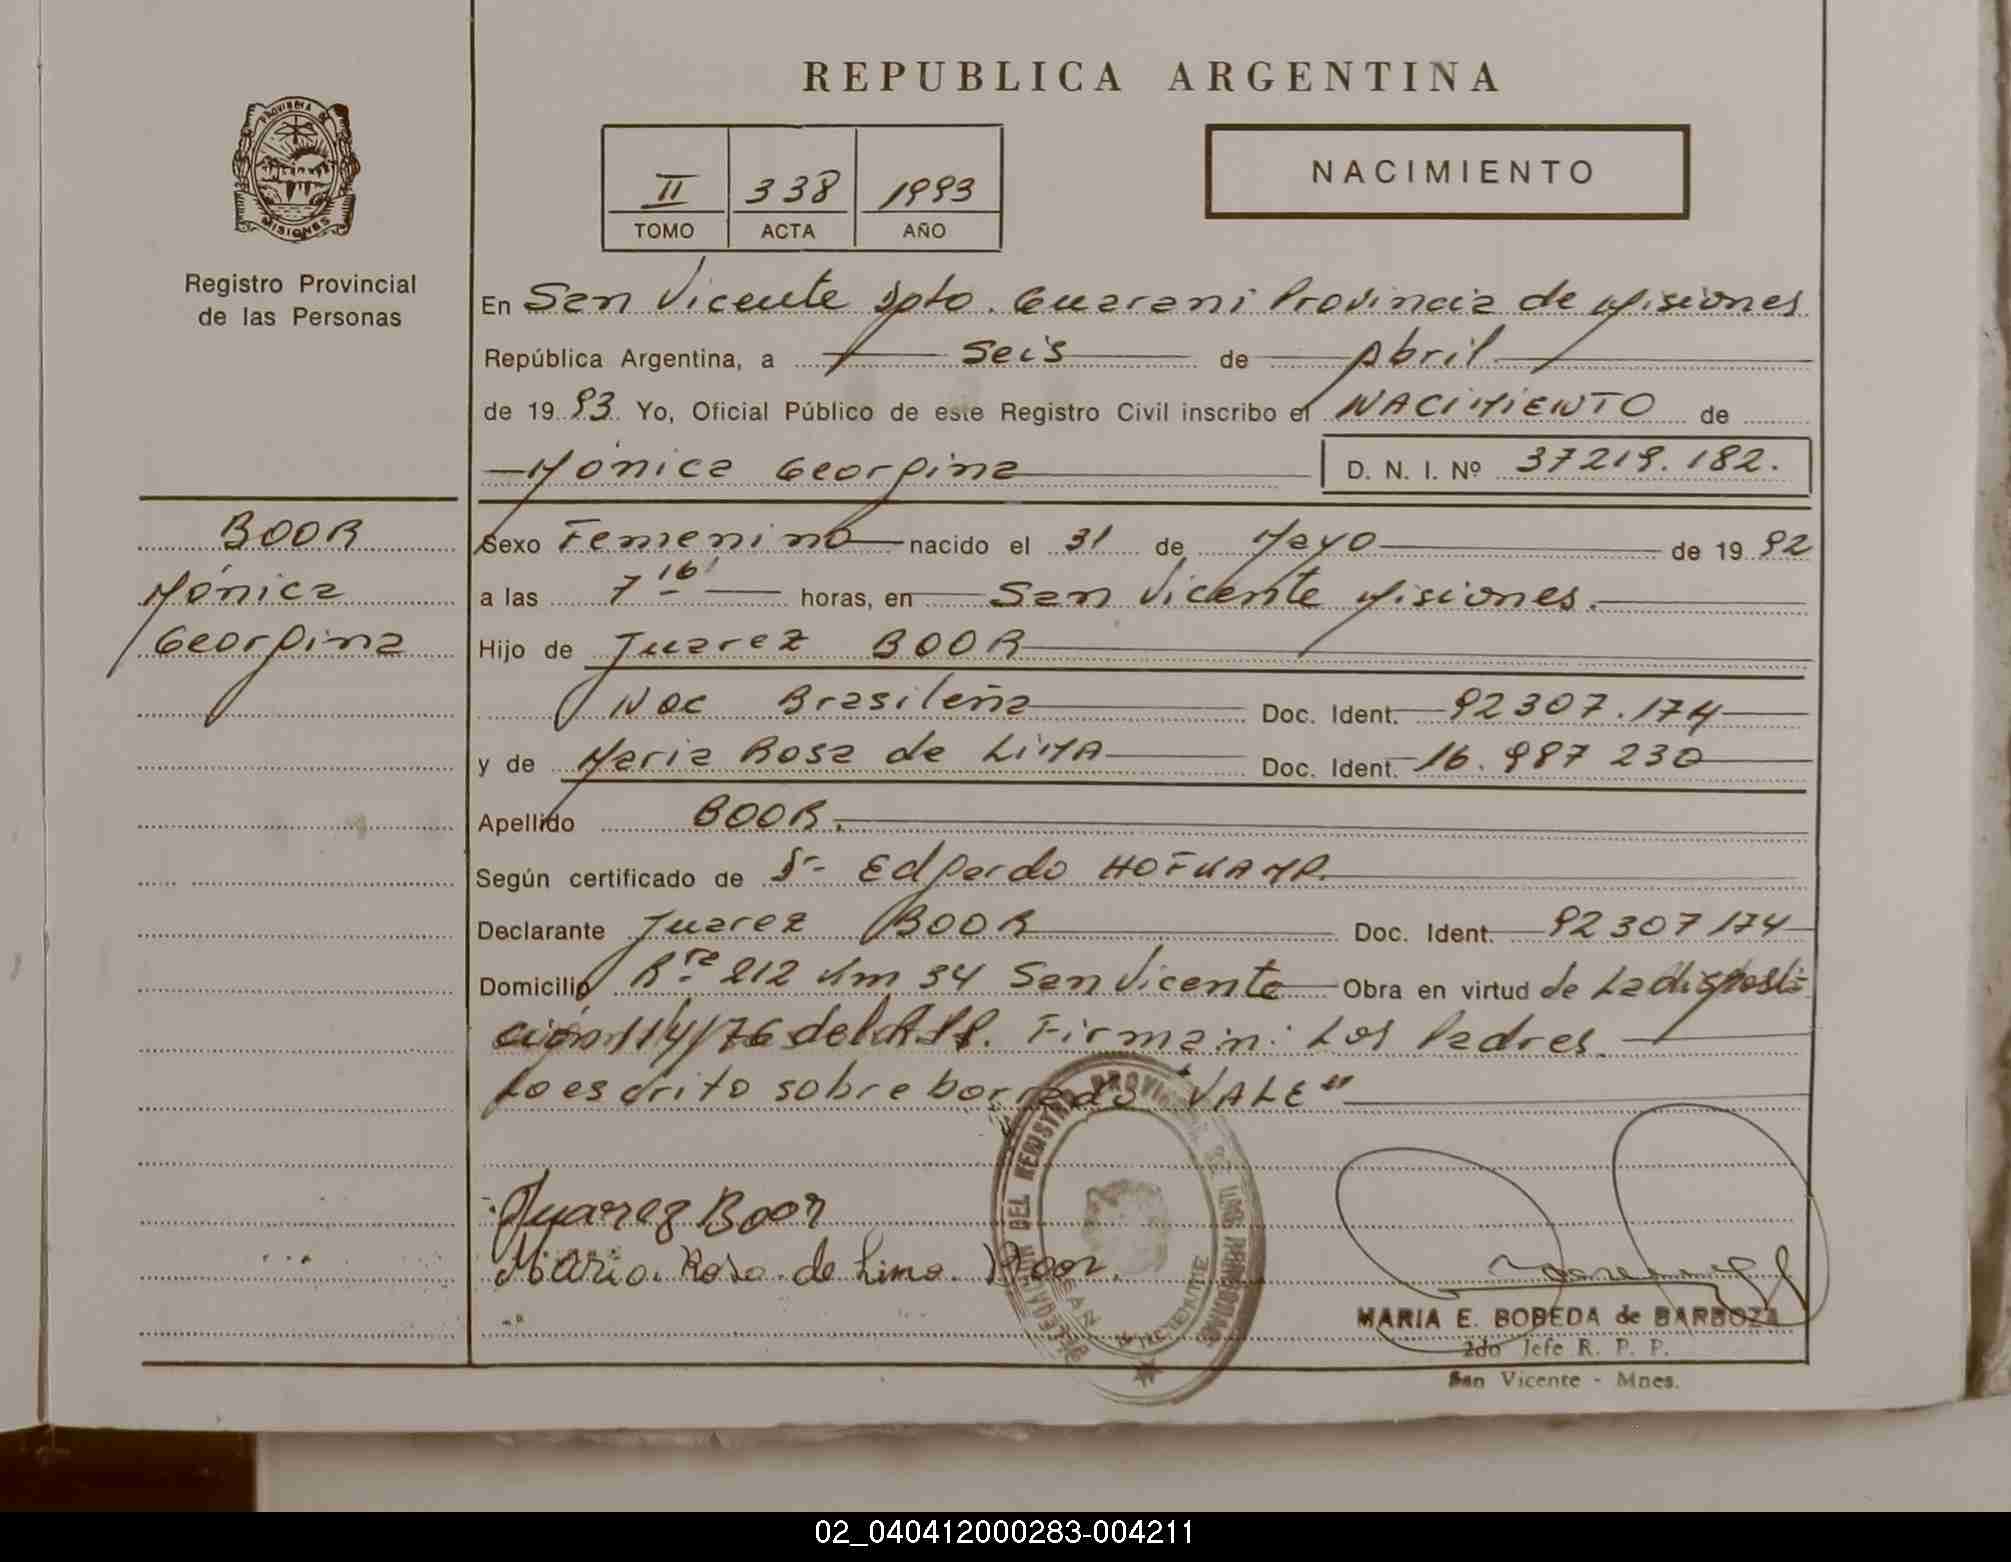 REPUBLICA ARGENTINA
PROVINCIA DE
MISIONES
II 338 1993
TOMO ACTA AÑO
NACIMIENTO
Registro Provincial
de las Personas
En San Vicente Dpto. Guarani Provincia de Misiones
República Argentina, a Seis de Abril
de 19 93 Yo, Oficial Público de este Registro Civil inscribo el NACIMIENTO de
Mónica Georgina D. N. I. Nº 37219.182.
BOOR
Mónica
Georgina
Sexo Femenino nacido el 31 de Mayo de 19 92
a las 7 16' horas, en San Vicente Misiones.
Hijo de Juarez BOOR
Nac Brasileña Doc. Ident. 92307.174
y de Maria Rosa de LIMA Doc. Ident. 16.987 230
Apellido BOOR.
Según certificado de Dr. Edgardo HOFKAMP.
Declarante Juarez BOOR Doc. Ident. 92307174
Domicilio Rta 212 Km 34 San Vicente Obra en virtud de La disposi-
ción 114/76 del R.P.P. Firman: Los Padres.
Lo escrito sobre borrado "VALE"
Juarez Boor
Maria Rosa de Lima Boor.
DEL REGISTRO PROVINCIAL DE LAS PERSONAS
SAN VICENTE
MARIA E. BOBEDA de BARBOZA
2do Jefe R. P. P.
San Vicente - Mnes.
02_040412000283-004211